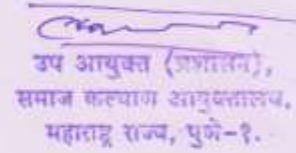 उप आयुक्त (प्रशासन),
समाज कल्याण आयुक्तालय,
महाराष्ट्र राज्य, पुणे-१.